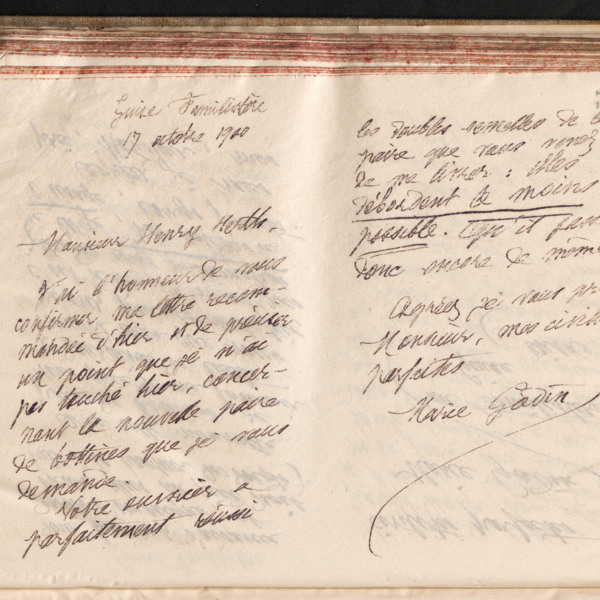 Guise Familistère
17 octobre 1900
Monsieur Henry Herth,
J'ai l'honneur de vous
confirmer ma lettre recom-
mandée d'hier et de préciser
un point que je n'ai
pas touché hier, concer-
nant la nouvelle paire
de bottines que je vous
demande.
Votre ouvrier a
parfaitement réussi
les doubles semelles de la
paire que vous venez
de me livrer : elles
débordent le moins
possible. Qu'il fasse
donc encore de même
Agréez, je vous pr
Monsieur, mes civili
parfaites
Marie Godin